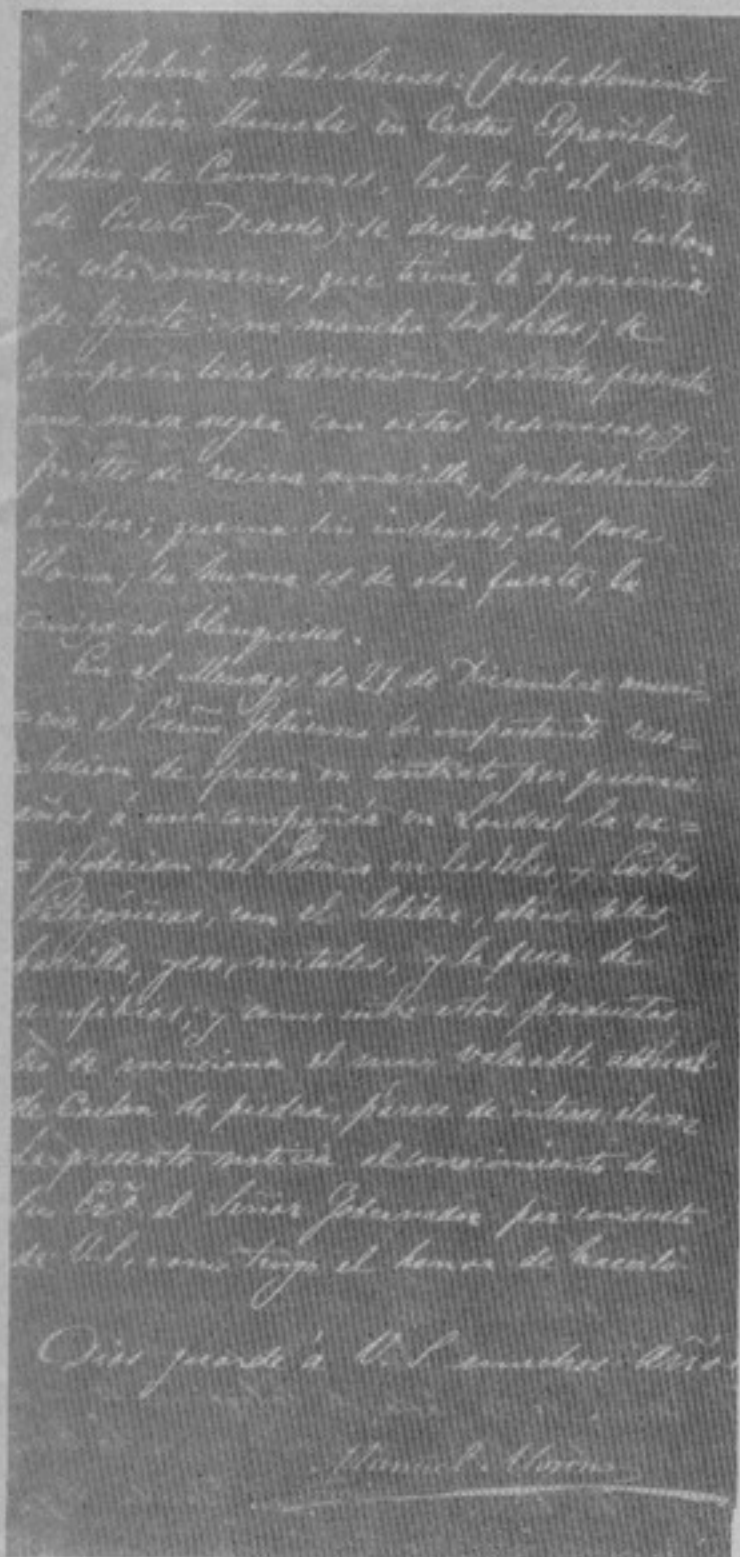 ó Bahía de las Arenas: (probablemente
la Bahía llamada en Cartas Españolas
Bahía de Camarones, lat. 45° al Norte
de Puerto Deseado) se descubre un carbon
de color moreno, que tiene la apariencia
de lignita: no mancha los dedos; se
rompe en todas direcciones; adentro presenta
una masa negra con vetas resinosas, y
puntos de resina amarilla, probablemente
ámbar; quema sin incharse; da poca
llama; su humo es de olor fuerte; la
ceniza es blanquisca.
En el Mensage de 27 de Diciembre anun=
=cia el Exmo Gobierno la importante reso=
=lucion de ofrecer en contrato por quince
años á una compañía en Londres la ex=
=plotacion del Huano en las Islas y Costas
Patagónicas, con el Salitre, otras sales,
barilla, yeso, metales, y la pesca de
anfibios; y como entre estos productos
no se menciona el muy valuable
de Carbon de piedra, parece de interes elevar
la presente noticia al conocimiento de
Su Exª el Señor Gobernador por conducto
de U.S. como tengo el honor de hacerlo
Dios guarde á V. S. muchos años
Manuel Moreno